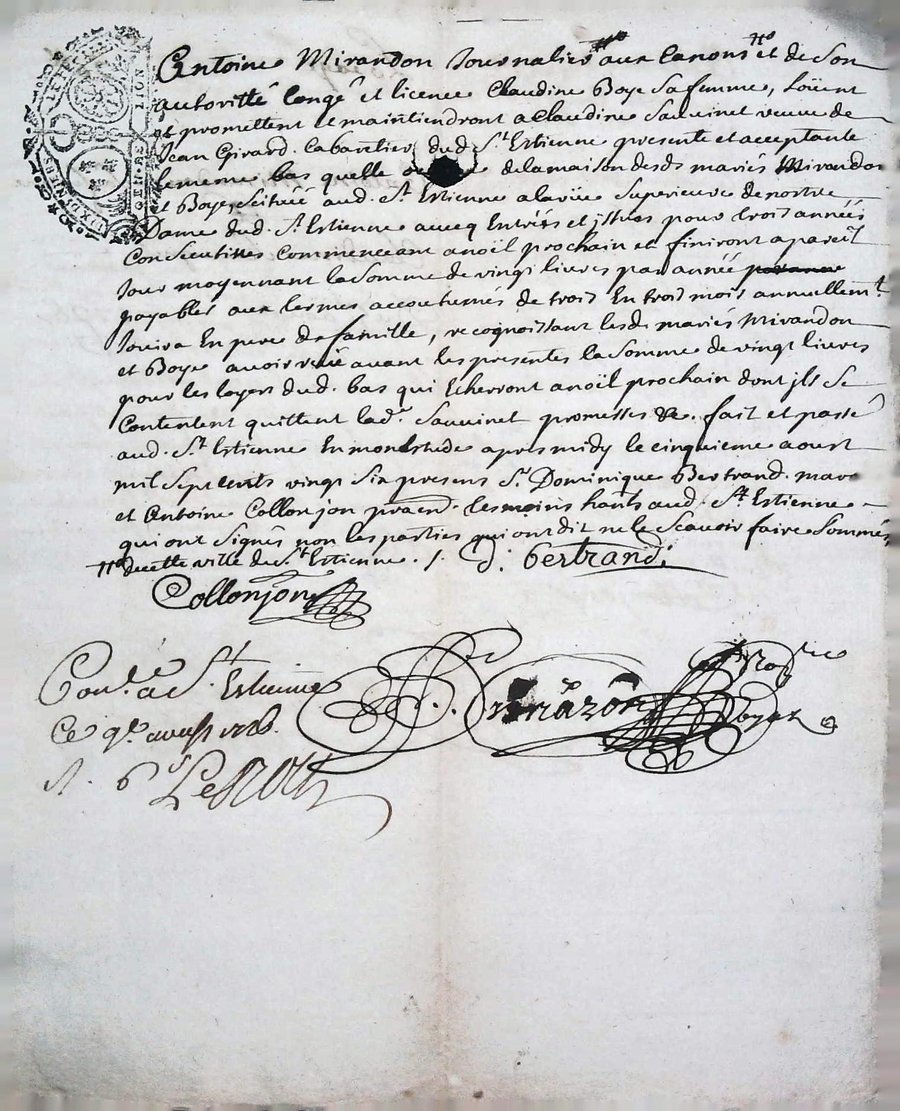 Antoine Mirandon Journalier aux Canons et de Son
authorité Congé et licence Claudine Boye Sa femme, Loüent
et promettent le maintiendront a Claudine Sauuinet veuue de
Jean Girard Cabaretier dud. St. Estienne presente et acceptante
le mesme bas quelle de la maison desds mariés Mirandon
et Boye, Scituée aud. St. Estienne a la rüe Superieure de nostre
Dame dud. St. Estienne auecq Entreés et jssues pour trois années
Consecutiues Commenceant a noël prochain et finiront a pareil
Jour moyennant la Somme de vingt liures par année
payables aux termes accoutumés de trois En trois mois annuellemt.
Jouira En pere de famille, recognoissant lesds mariés Mirandon
et Boye auoir reçu auant les presentes la Somme de vingt liures
pour les loyers dud. bas qui Echerront a noël prochain dont jls Se
Contentent quittent lad. Sauuinet promesses &c. fait et passé
aud. St. Estienne En mon Estude apres midy le cinquieme aoust
mil Sept cents vingt Six presens Sr. Dominique Bertrand. marc
et Antoine Collonjon praend. tesmoins hants aud. St. Estienne
qui ont Signés non les parties qui ont dit ne le Scauoir faire Sommés
de cette ville de St. Estienne. /. D. Bertrand.
Collonjon
Conlé. a St. Estienne
Ce 9e. aoust 1726.
No.re
Royal
R. 6s